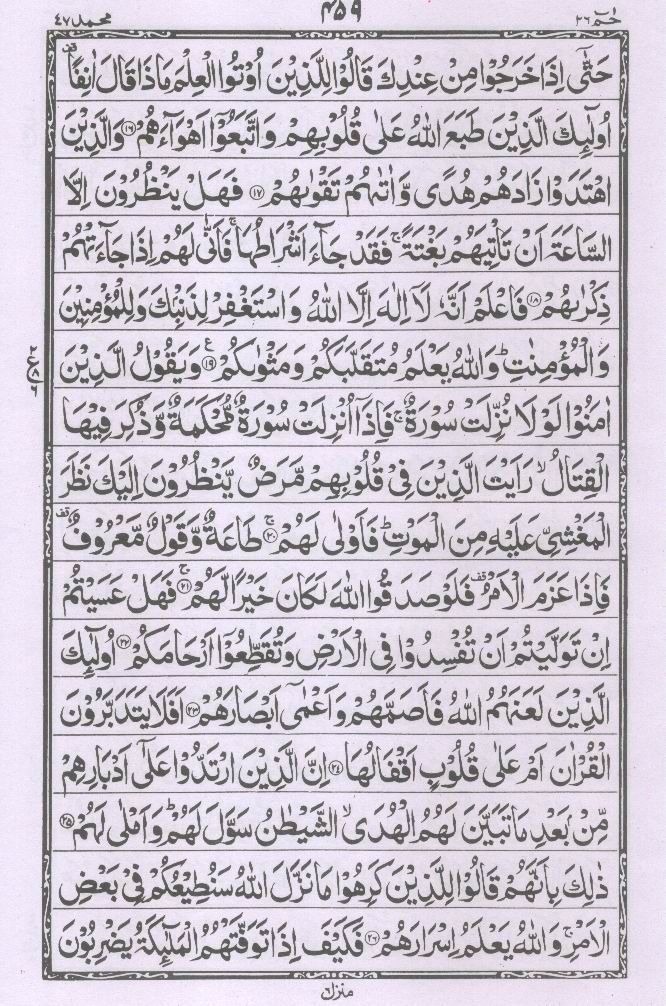 حٰمٓ ٢٦ ٤٥٩ محمد ٤٧
حَتّٰۤى اِذَا خَرَجُوْا مِنْ عِنْدِكَ قَالُوْا لِلَّذِيْنَ اُوْتُوا الْعِلْمَ مَاذَا قَالَ اٰنِفًا قف
اُولٰٓئِكَ الَّذِيْنَ طَبَعَ اللّٰهُ عَلٰى قُلُوْبِهِمْ وَاتَّبَعُوْۤا اَهْوَآءَهُمْ ۝١٦ وَالَّذِيْنَ
اهْتَدَوْا زَادَهُمْ هُدًى وَّاٰتٰىهُمْ تَقْوٰىهُمْ ۝١٧ فَهَلْ يَنْظُرُوْنَ اِلَّا
السَّاعَةَ اَنْ تَاْتِيَهُمْ بَغْتَةً ۚ فَقَدْ جَآءَ اَشْرَاطُهَا ۚ فَاَنّٰى لَهُمْ اِذَا جَآءَتْهُمْ
ذِكْرٰىهُمْ ۝١٨ فَاعْلَمْ اَنَّهٗ لَاۤ اِلٰهَ اِلَّا اللّٰهُ وَاسْتَغْفِرْ لِذَنْۢبِكَ وَلِلْمُؤْمِنِيْنَ
وَالْمُؤْمِنٰتِ ؕ وَاللّٰهُ يَعْلَمُ مُتَقَلَّبَكُمْ وَمَثْوٰىكُمْ ۝١٩ ع وَيَقُوْلُ الَّذِيْنَ
اٰمَنُوْا لَوْلَا نُزِّلَتْ سُوْرَةٌ ۚ فَاِذَاۤ اُنْزِلَتْ سُوْرَةٌ مُّحْكَمَةٌ وَّذُكِرَ فِيْهَا
الْقِتَالُ ۙ رَاَيْتَ الَّذِيْنَ فِيْ قُلُوْبِهِمْ مَّرَضٌ يَّنْظُرُوْنَ اِلَيْكَ نَظَرَ
الْمَغْشِيِّ عَلَيْهِ مِنَ الْمَوْتِ ؕ فَاَوْلٰى لَهُمْ ۝٢٠ ۚ طَاعَةٌ وَّقَوْلٌ مَّعْرُوْفٌ قف
فَاِذَا عَزَمَ الْاَمْرُ قف فَلَوْ صَدَقُوا اللّٰهَ لَكَانَ خَيْرًا لَّهُمْ ۝٢١ ۚ فَهَلْ عَسَيْتُمْ
اِنْ تَوَلَّيْتُمْ اَنْ تُفْسِدُوْا فِي الْاَرْضِ وَتُقَطِّعُوْۤا اَرْحَامَكُمْ ۝٢٢ اُولٰٓئِكَ
الَّذِيْنَ لَعَنَهُمُ اللّٰهُ فَاَصَمَّهُمْ وَاَعْمٰۤى اَبْصَارَهُمْ ۝٢٣ اَفَلَا يَتَدَبَّرُوْنَ
الْقُرْاٰنَ اَمْ عَلٰى قُلُوْبٍ اَقْفَالُهَا ۝٢٤ اِنَّ الَّذِيْنَ ارْتَدُّوْا عَلٰۤى اَدْبَارِهِمْ
مِّنْۢ بَعْدِ مَا تَبَيَّنَ لَهُمُ الْهُدَى ۙ الشَّيْطٰنُ سَوَّلَ لَهُمْ ؕ وَاَمْلٰى لَهُمْ ۝٢٥
ذٰلِكَ بِاَنَّهُمْ قَالُوْا لِلَّذِيْنَ كَرِهُوْا مَا نَزَّلَ اللّٰهُ سَنُطِيْعُكُمْ فِيْ بَعْضِ
الْاَمْرِ ۚ وَاللّٰهُ يَعْلَمُ اِسْرَارَهُمْ ۝٢٦ فَكَيْفَ اِذَا تَوَفَّتْهُمُ الْمَلٰٓئِكَةُ يَضْرِبُوْنَ
منزل ٦